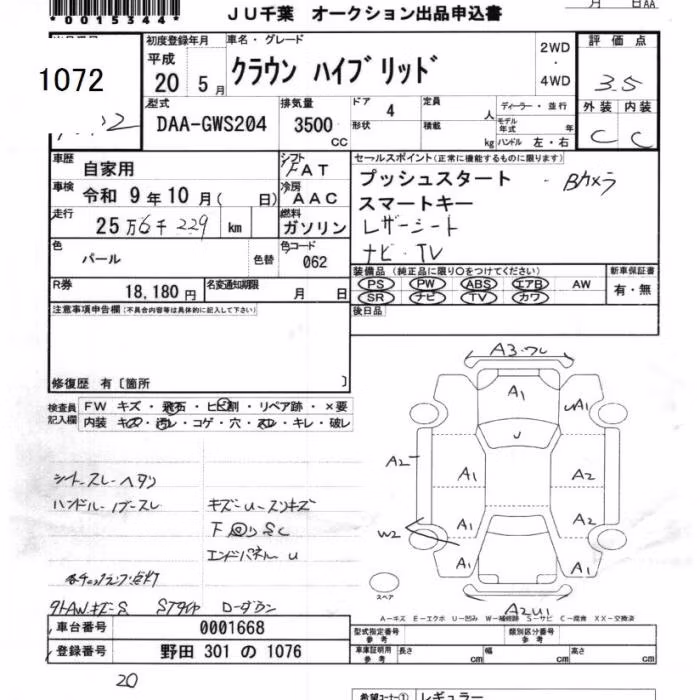 *0015344*
JU千葉 オークション出品申込書
月 日AA
1072
初度登録年月 車名・グレード
平成 20 5月
クラウン ハイブリッド
2WD・4WD
評価点
3.5
外装 内装
C C
型式 DAA-GWS204
排気量 3500 CC
ドア 4 定員 人
形状 積載 kg
ディーラー・並行
モデル年式 年
ハンドル 左・右
車歴 自家用
シフト FAT
車検 令和 9年10月( 日)
冷房 AAC
走行 25万6千229 km
燃料 ガソリン
色 パール 色替
色コード 062
セールスポイント(正常に機能するものに限ります)
プッシュスタート ・Bカメラ
スマートキー
レザーシート
ナビ・TV
装備品(純正品に限り○をつけてください)
PS PW ABS エアB AW
SR ナビ TV カワ
新車保証書
有・無
後日品
R券 18,180円
名変通知期限 月 日
注意事項申告欄(不具合内容等は具体的に記入して下さい)
修復歴 有〔箇所 〕
検査員記入欄
FW キズ・飛石・ヒビ割・リペア跡・×要
内装 キズ・汚レ・コゲ・穴・スレ・キレ・破レ
シートスレ・ヘタリ
ハンドル・ブースレ
キズ・U・スリキズ
下回りSC
エンドパネルU
各チェックランプ点灯
タイヤ ローダウン
A3・ワレ
A1
UA1
U
A2
A1 A2
A1 A2
W2
A1 A1
A2U1
スペア
A-キズ E-エクボ U-凹み W-補修跡 S-サビ C-腐食 XX-交換済
車台番号 0001668
登録番号 野田 301 の 1076
型式指定番号 参考
類別区分番号 参考
車庫証明用 参考 長さ cm 幅 cm 高さ cm
20
希望コーナー① レギュラー